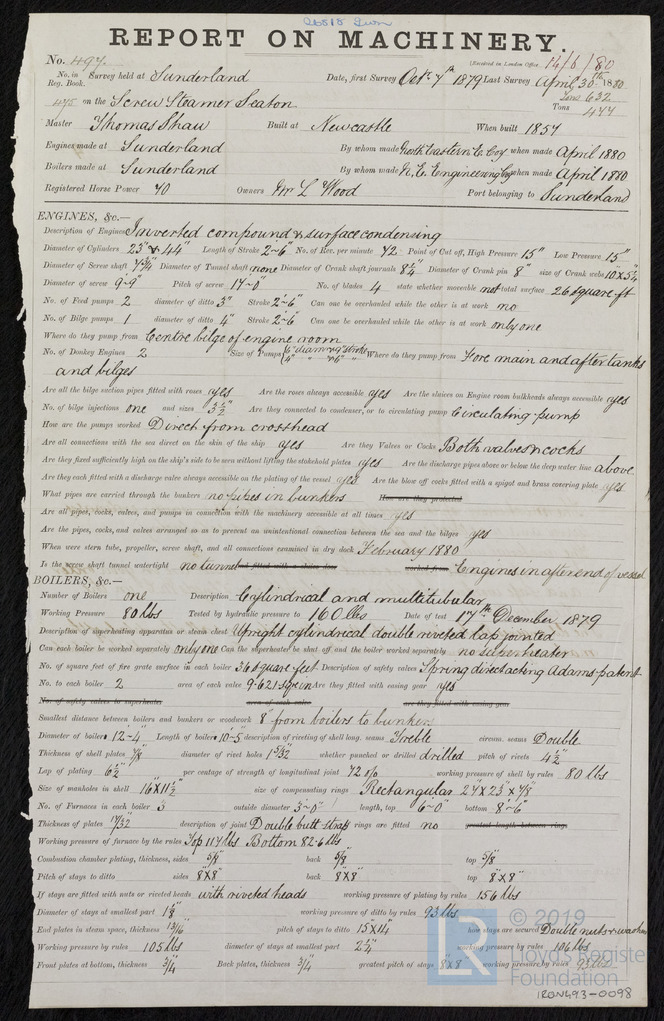 26518 Iron
REPORT ON MACHINERY.
No. 497. (Received in London Office 14/6/80
No. in Reg. Book. Survey held at Sunderland Date, first Survey Octr 7th 1879 Last Survey April 30th 1880
475 on the Screw Steamer Seaton Tons 632 477
Master Thomas Shaw Built at Newcastle When built 1857
Engines made at Sunderland By whom made North Eastern E. Coy when made April 1880
Boilers made at Sunderland By whom made N. E. Engineering Coy when made April 1880
Registered Horse Power 70 Owners Mr L Wood Port belonging to Sunderland
ENGINES, &c.—
Description of Engines Inverted compound & surface condensing
Diameter of Cylinders 23" & 44" Length of Stroke 2-6" No. of Rev. per minute 72 Point of Cut off, High Pressure 15" Low Pressure 15"
Diameter of Screw shaft 7 3/4 Diameter of Tunnel shaft none Diameter of Crank shaft journals 8 1/4" Diameter of Crank pin 8" size of Crank webs 10 x 5 1/4
Diameter of screw 9'-9" Pitch of screw 14-0" No. of blades 4 state whether moveable not total surface 26 square ft
No. of Feed pumps 2 diameter of ditto 3" Stroke 2-6" Can one be overhauled while the other is at work no
No. of Bilge pumps 1 diameter of ditto 4" Stroke 2-6 Can one be overhauled while the other is at work only one
Where do they pump from Centre bilge of engine room
No. of Donkey Engines 2 Size of Pumps Where do they pump from Fore main and after tanks
and bilges
Are all the bilge suction pipes fitted with roses yes Are the roses always accessible yes Are the sluices on Engine room bulkheads always accessible yes
No. of bilge injections one and sizes 3 1/2" Are they connected to condenser, or to circulating pump Circulating pump
How are the pumps worked Direct from crosshead
Are all connections with the sea direct on the skin of the ship yes Are they Valves or Cocks Both valves & cocks
Are they fixed sufficiently high on the ship's side to be seen without lifting the stokehold plates yes Are the discharge pipes above or below the deep water line above
Are they each fitted with a discharge valve always accessible on the plating of the vessel yes Are the blow off cocks fitted with a spigot and brass covering plate yes
What pipes are carried through the bunkers no pipes in bunkers How are they protected
Are all pipes, cocks, valves, and pumps in connection with the machinery accessible at all times yes
Are the pipes, cocks, and valves arranged so as to prevent an unintentional connection between the sea and the bilges yes
When were stern tube, propeller, screw shaft, and all connections examined in dry dock February 1880
Is the screw shaft tunnel watertight no tunnel and fitted with a sluice door worked from Engines in after end of vessel
BOILERS, &c.—
Number of Boilers one Description Cylindrical and multitubular
Working Pressure 80 lbs Tested by hydraulic pressure to 160 lbs Date of test 17th December 1879
Description of superheating apparatus or steam chest Upright cylindrical double riveted lap jointed
Can each boiler be worked separately only one Can the superheater be shut off and the boiler worked separately no superheater
No. of square feet of fire grate surface in each boiler 36 square feet Description of safety valves Spring direct acting Adams patent
No. to each boiler 2 area of each valve 9.621 sq in Are they fitted with easing gear yes
No. of safety valves to superheater area of each valve are they fitted with easing gear
Smallest distance between boilers and bunkers or woodwork 8" from boilers to bunkers
Diameter of boilers 12-4" Length of boilers 10-5" description of riveting of shell long. seams Treble circum. seams Double
Thickness of shell plates 7/8 diameter of rivet holes 1 5/32 whether punched or drilled drilled pitch of rivets 4 1/2"
Lap of plating 6 1/2" per centage of strength of longitudinal joint 72 o/o working pressure of shell by rules 80 lbs
Size of manholes in shell 16" x 11 1/2" size of compensating rings Rectangular 27 x 23 x 7/8"
No. of Furnaces in each boiler 3 outside diameter 3-0" length, top 6-0" bottom 8-6"
Thickness of plates 17/32 description of joint Double butt strap rings are fitted no greatest length between rings
Working pressure of furnace by the rules Top 117 lbs Bottom 82.6 lbs
Combustion chamber plating, thickness, sides 5/8" back 5/8 top 5/8"
Pitch of stays to ditto sides 8"x8" back 8"x8" top 8"x8"
If stays are fitted with nuts or riveted heads with riveted heads working pressure of plating by rules 156 lbs
Diameter of stays at smallest part 1 1/8" working pressure of ditto by rules 93 lbs
End plates in steam space, thickness 13/16 pitch of stays to ditto 15" x 14 how stays are secured Double nuts & washers
Working pressure by rules 105 lbs diameter of stays at smallest part 2 1/4" working pressure by rules 106 lbs
Front plates at bottom, thickness 3/4" Back plates, thickness 3/4 greatest pitch of stays 8"x8 working pressure by rules 93 lbs
© 2019
Lloyd's Register
Foundation
IRON493-0098